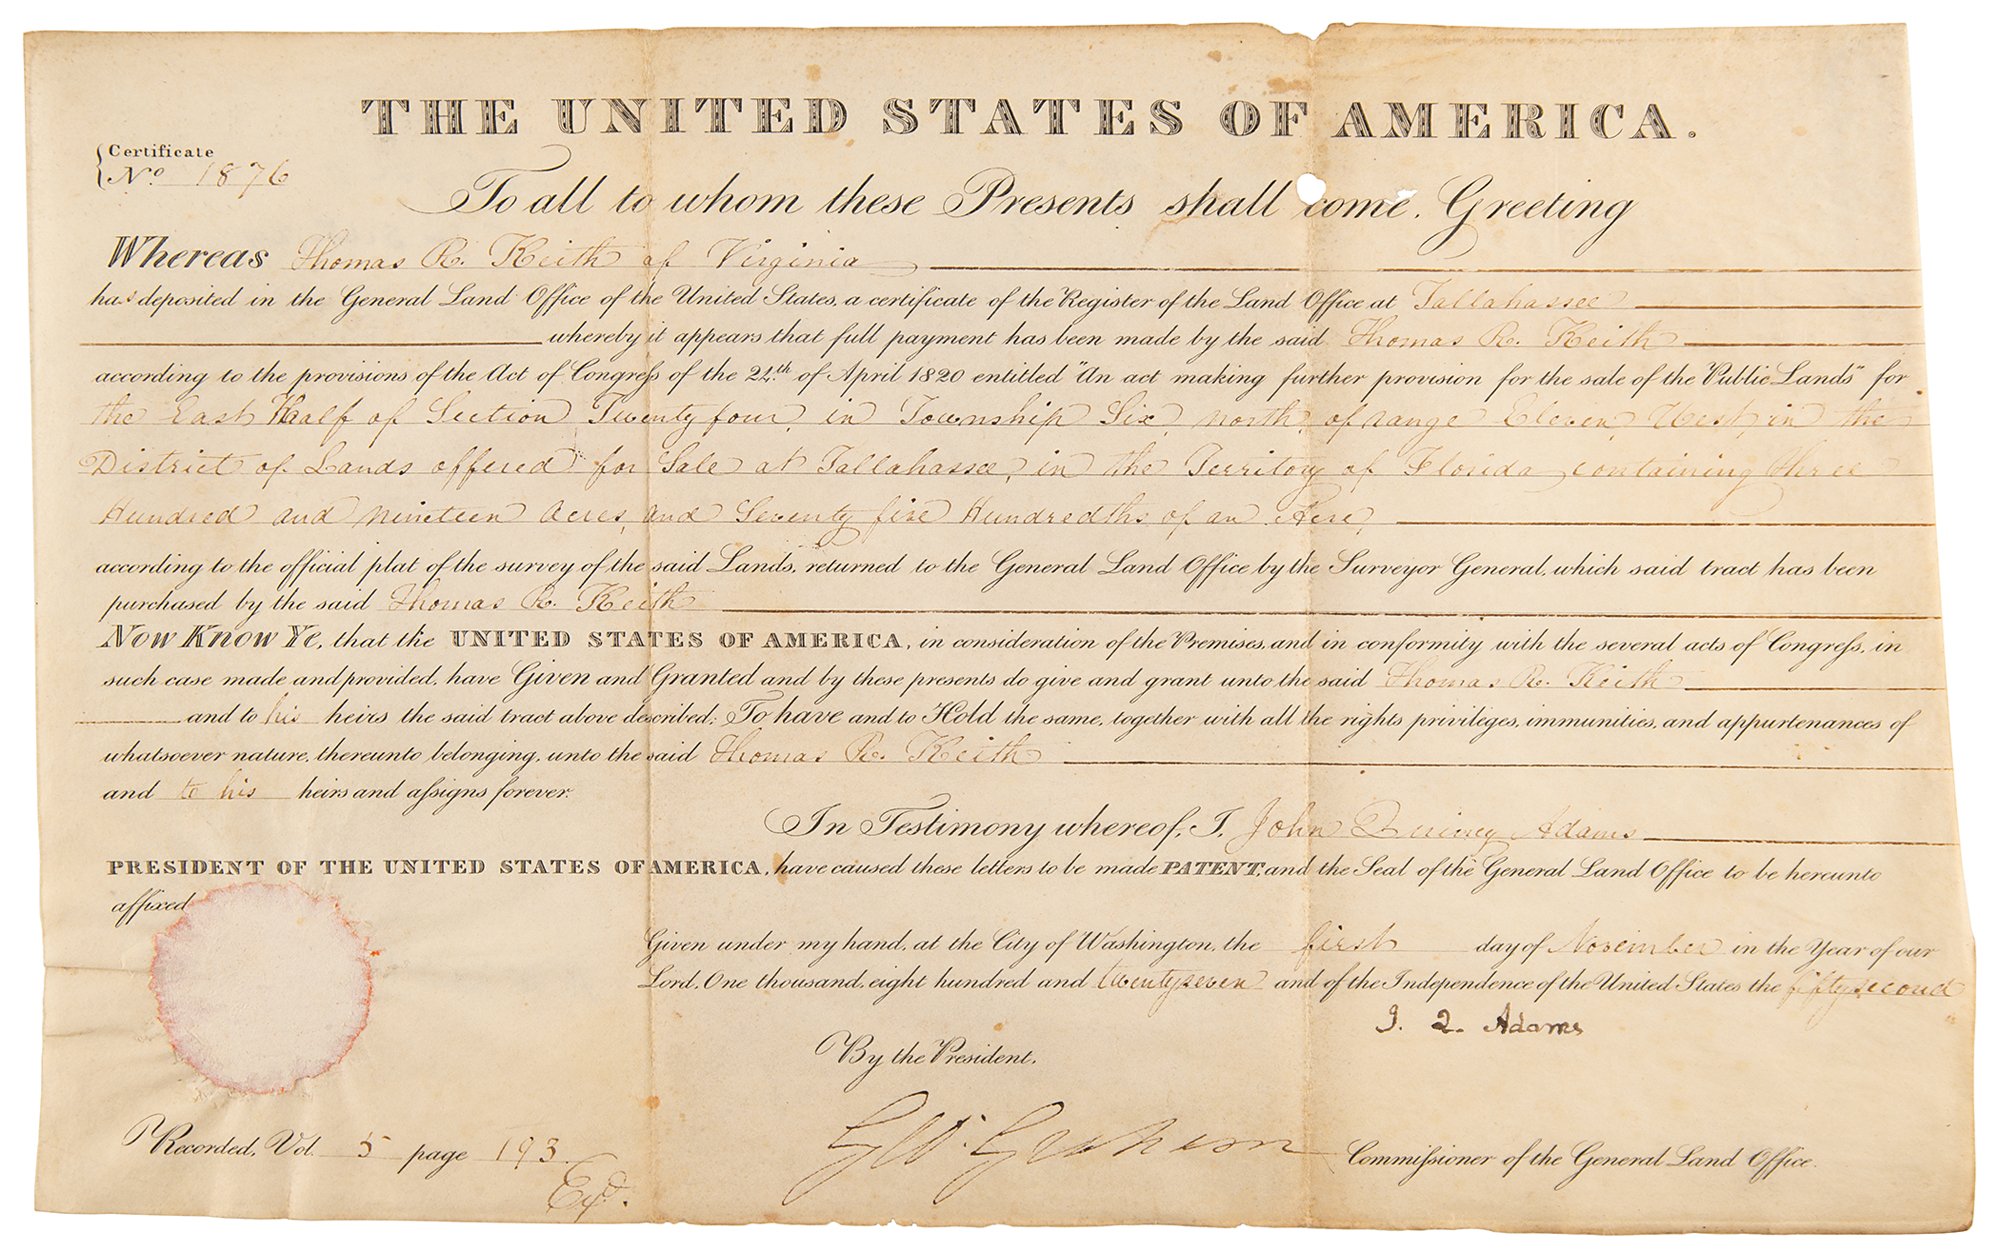 THE UNITED STATES OF AMERICA.
Certificate
No. 1876
To all to whom these Presents shall come, Greeting
Whereas Thomas R. Keith of Virginia
has deposited in the General Land Office of the United States, a certificate of the Register of the Land Office at Tallahassee
whereby it appears that full payment has been made by the said Thomas R. Keith
according to the provisions of the Act of Congress of the 24th of April 1820 entitled "An act making further provision for the sale of the Public Lands" for
the East Half of Section Twenty four, in Township Six, north, of range Eleven, West, in the
District of Lands offered for Sale at Tallahassee, in the Territory of Florida containing three
Hundred and nineteen acres, and Seventy five Hundredths of an Acre,
according to the official plat of the survey of the said Lands, returned to the General Land Office by the Surveyor General, which said tract has been
purchased by the said Thomas R. Keith
Now Know Ye, that the UNITED STATES OF AMERICA, in consideration of the Premises, and in conformity with the several acts of Congress, in
such case made and provided, have Given and Granted and by these presents do give and grant unto the said Thomas R. Keith
and to his heirs the said tract above described; To have and to Hold the same, together with all the rights privileges, immunities, and appurtenances of
whatsoever nature, thereunto belonging, unto the said Thomas R. Keith
and to his heirs and assigns forever.
In Testimony whereof, I, John Quincy Adams
PRESIDENT OF THE UNITED STATES OF AMERICA, have caused these letters to be made PATENT, and the Seal of the General Land Office to be hereunto
affixed
Given under my hand, at the City of Washington, the first day of November in the Year of our
Lord, One thousand, eight hundred and twenty seven and of the Independence of the United States the fifty second
J. Q. Adams
By the President,
Geo. Graham Commissioner of the General Land Office.
Recorded, Vol. 5 page 193
Exd.